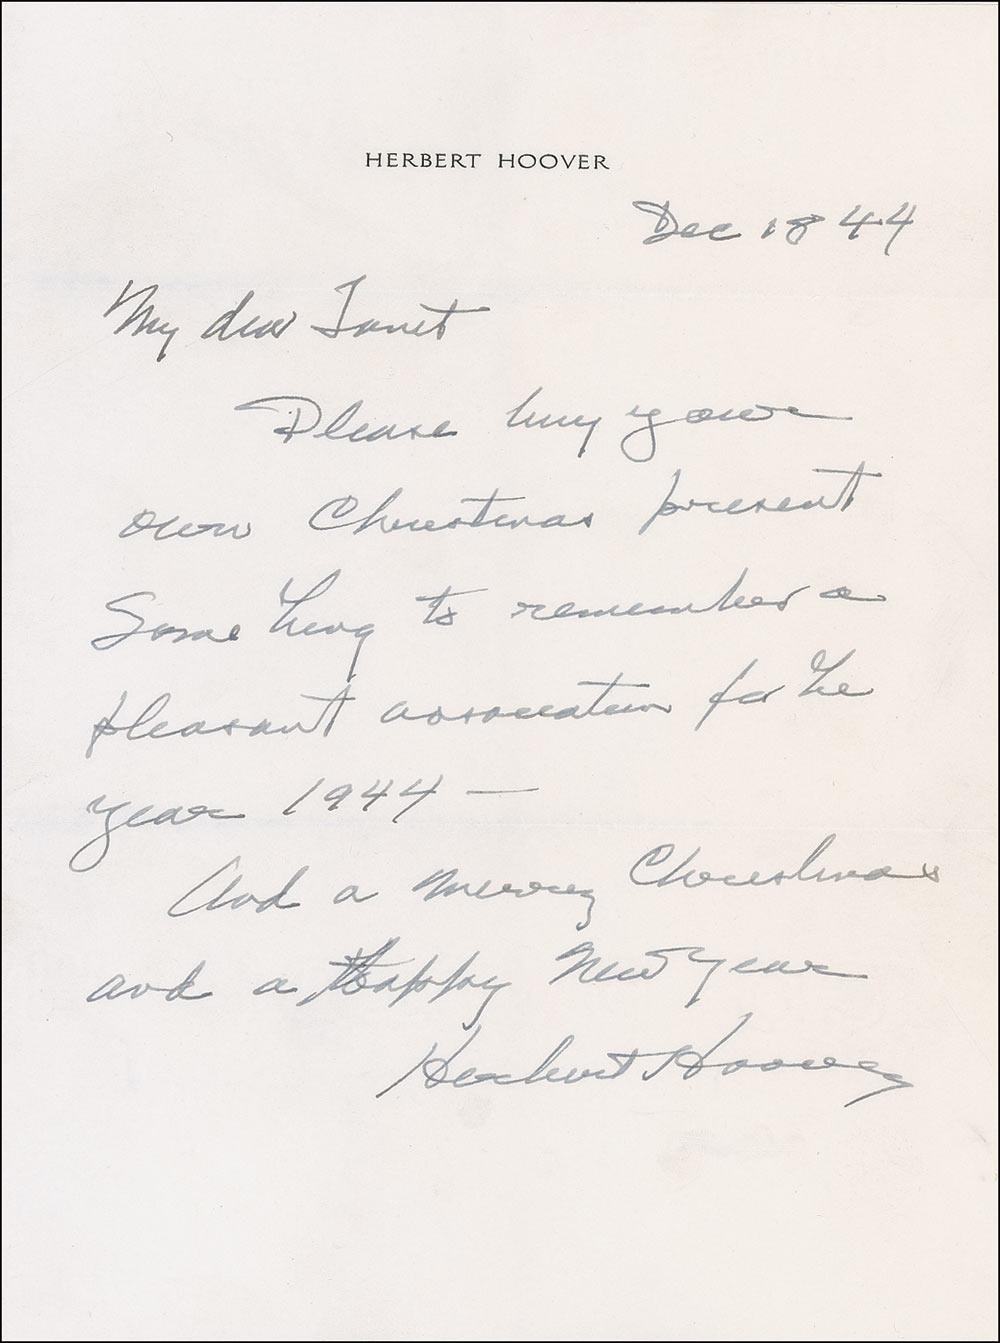 HERBERT HOOVER
Dec 18 44
My dear Janet
Please buy your
own Christmas present
Some thing to remember a
pleasant association for the
year 1944 —
And a merry Christmas
and a Happy New Year
Herbert Hoover